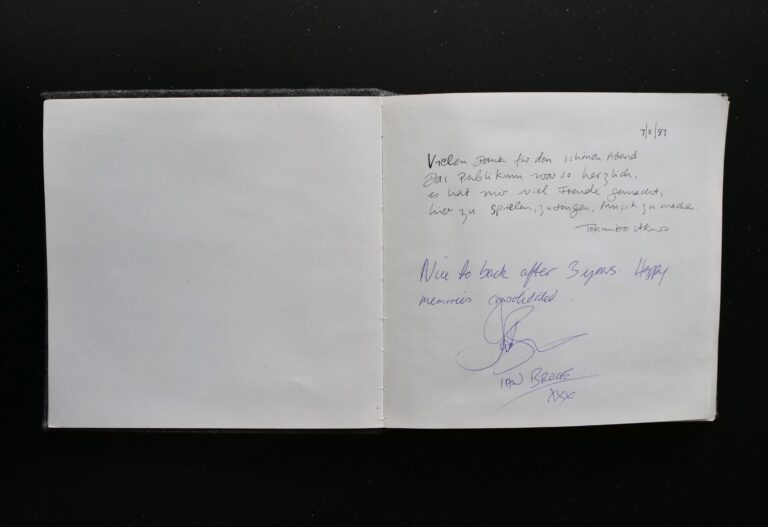 7/11/97
Vielen Dank für den schönen Abend
Das Publikum war so herzlich,
es hat mir viel Freude gemacht,
hier zu spielen, zu singen, Musik zu machen.
Tokunbo Akinro
Nice to back after 3 years. Happy
memories consolidated.
IAN BRODE
XXX